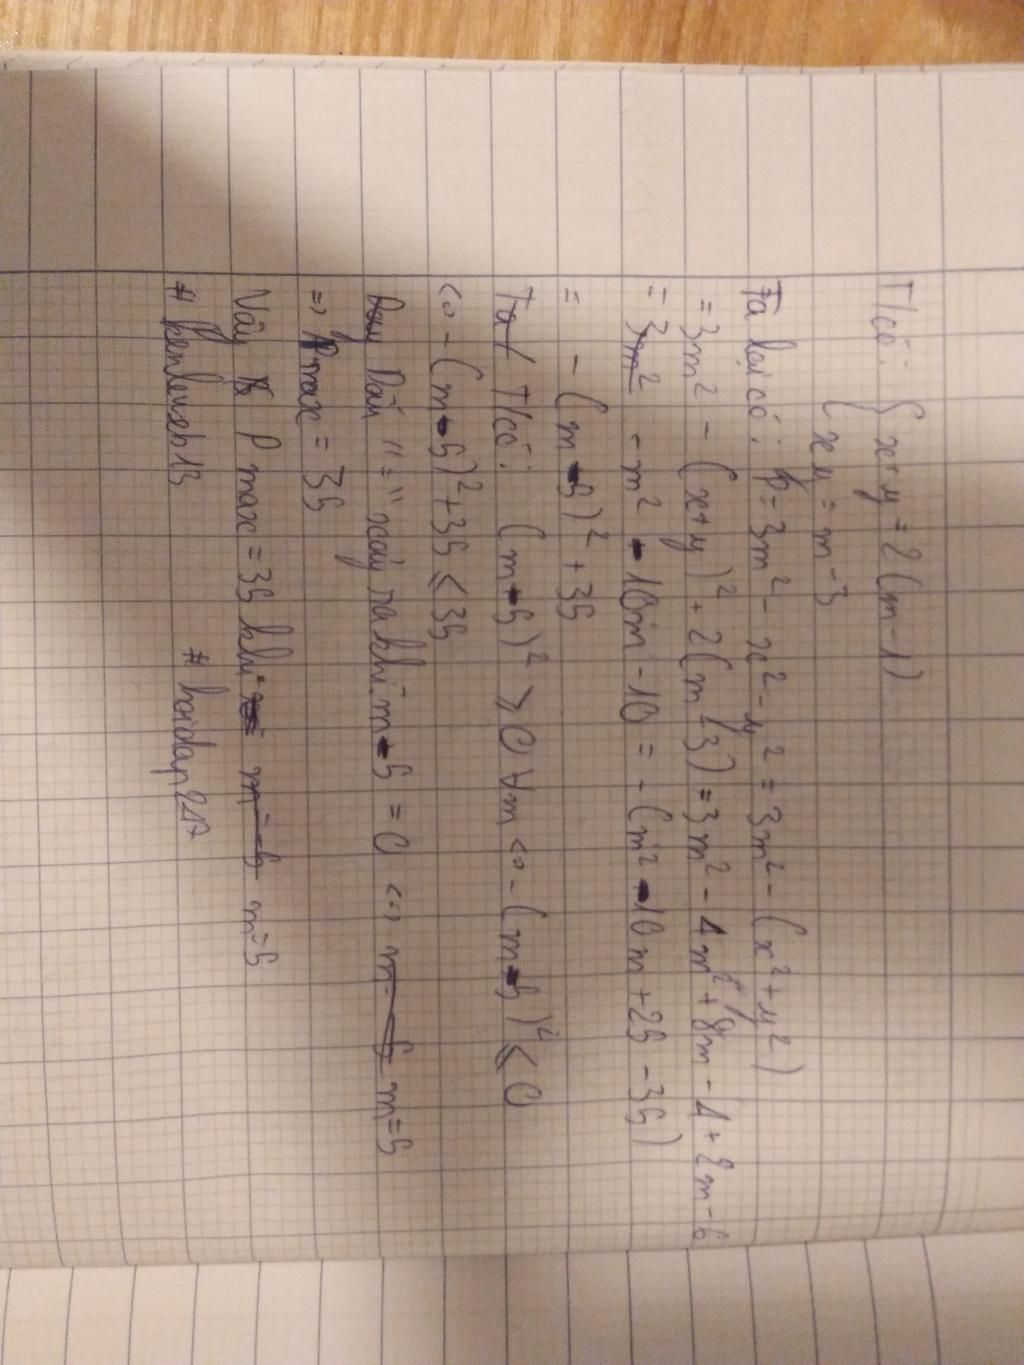 T/có: { x+y = 2(m-1)
{ xy = m-3
Ta lại có: P = 3m² - x² - y² = 3m² - (x²+y²)
= 3m² - (x+y)² + 2(m-3) = 3m² - 4m² + 8m - 4 + 2m - 6
= 3m² - m² + 10m - 10 = - (m² - 10m + 25 - 35)
= - (m-5)² + 35
Ta T/có: (m-5)² ≥ 0 ∀m <=> - (m-5)² ≤ 0
<=> - (m-5)² + 35 ≤ 35
Dấu "=" xảy ra khi: m-5 = 0 <=> m=5
=> Pmax = 35
Vậy P max = 35 khi m=5
# kenlevseb13 # hoidap247